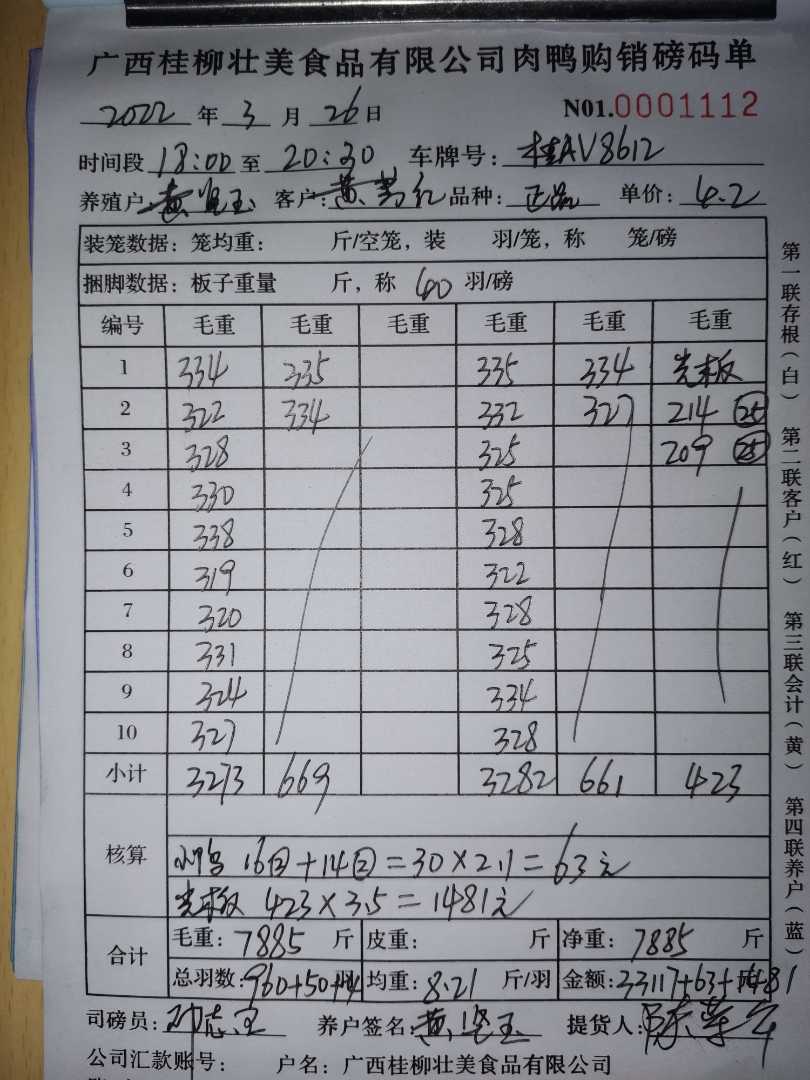 广西桂柳壮美食品有限公司肉鸭购销磅码单
2022 年 3 月 26 日 N01.0001112
时间段 18:00 至 20:30 车牌号: 桂AV8612
养殖户: 黄坚玉 客户: 黄 红 品种: 正品 单价: 4.2
装笼数据: 笼均重: 斤/空笼, 装 羽/笼, 称 笼/磅
捆脚数据: 板子重量 斤, 称 40 羽/磅
编号 毛重 毛重 毛重 毛重 毛重 毛重
1 334 335 335 334 光板
2 322 334 332 327 214 25
3 328 325 209 25
4 330 325
5 338 328
6 319 322
7 320 328
8 331 325
9 324 334
10 327 328
小计 3273 669 3282 661 423
核算
小鸟 16回+14回=30×2.1=63元
光板 423×3.5=1481元
合计 毛重: 7885 斤 皮重: 斤 净重: 7885 斤
总羽数: 960+50+14 羽 均重: 8.21 斤/羽 金额: 33117+63+1481
司磅员: 养户签名: 黄坚玉 提货人:
公司汇款账号: 户名: 广西桂柳壮美食品有限公司
第一联存根(白) 第二联客户(红) 第三联会计(黄) 第四联养户(蓝)